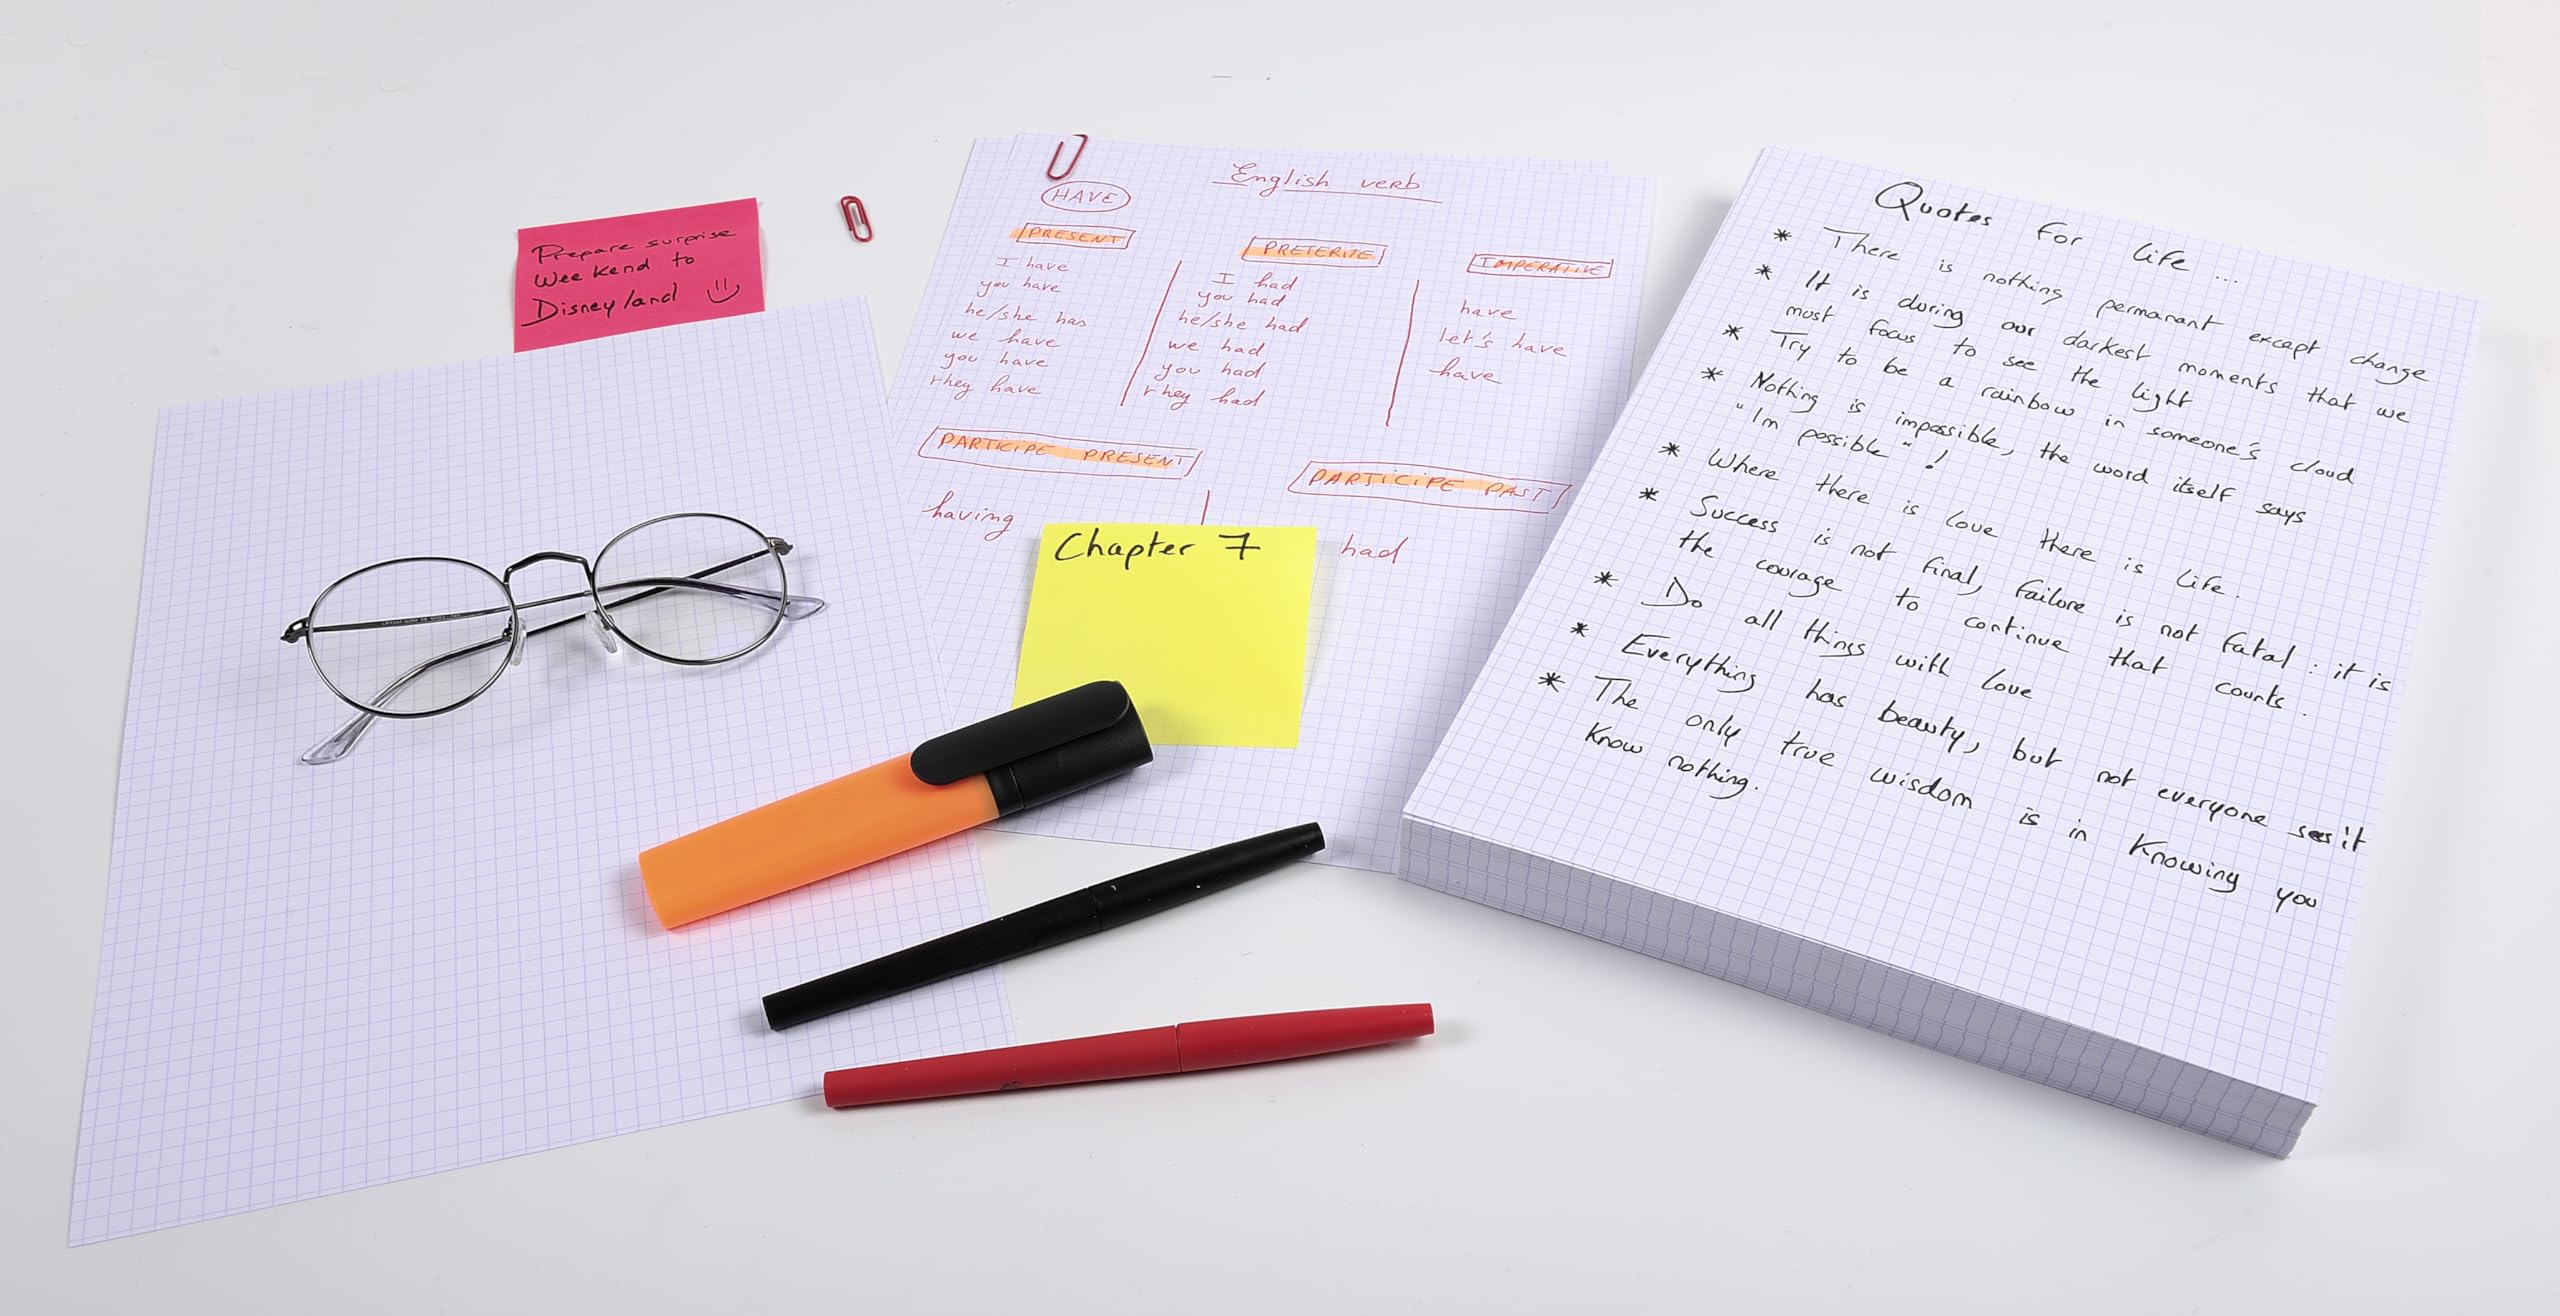 Prepare surprise
Weekend to
Disneyland
English verb
HAVE
PRESENT
I have
you have
he/she has
we have
you have
they have
PRETERITE
I had
you had
he/she had
we had
you had
they had
IMPERATIVE
have
let's have
have
PARTICIPE PRESENT
having
PARTICIPE PAST
had
Chapter 7
Quotes for life ...
* There is nothing permanant except change
* It is during our darkest moments that we
must focus to see the light
* Try to be a rainbow in someone's cloud
* Nothing is impossible, the word itself says
"Im possible"!
* Where there is love there is life.
* Success is not final, failure is not fatal : it is
the courage to continue that counts.
* Do all things with love
* Everything has beauty, but not everyone sees it
* The only true wisdom is in knowing you
know nothing.